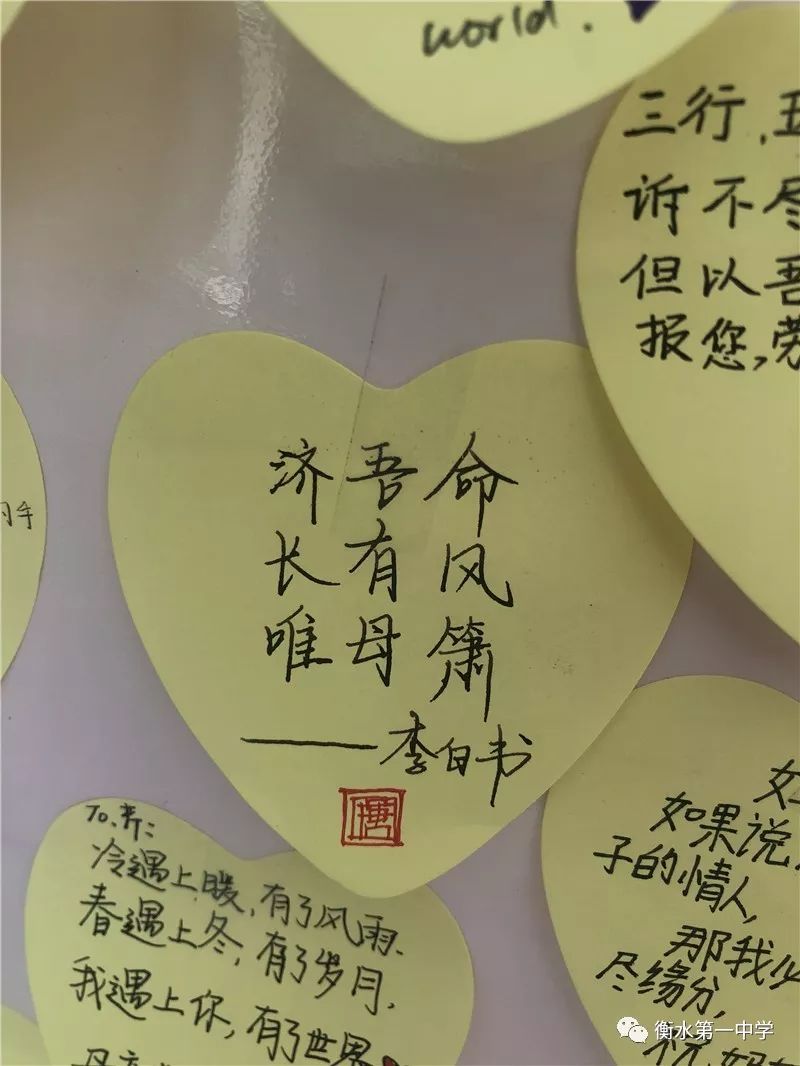 world.
三行,五
诉不尽
但以吾
报您,劳
手
济吾命
长有风
唯母箫
——李白书
唐
To
冷遇上暖,有了风雨.
春遇上冬,有了岁月,
我遇上你,有了世界
如
如果说,
子的情人,
那我
尽缘分,
衡水第一中学